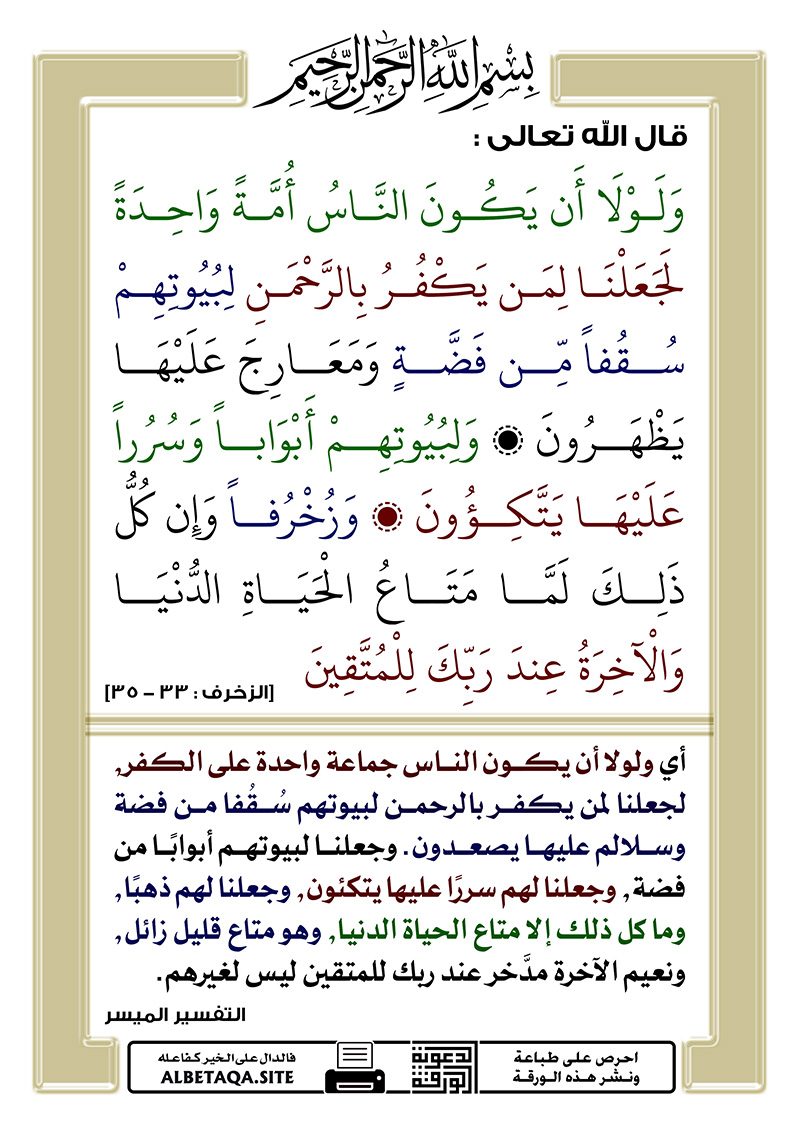 بسم الله الرحمن الرحيم
قال الله تعالى :
وَلَـوْلَا أَن يَكُـونَ النَّـاسُ أُمَّـةً وَاحِـدَةً
لَجَعَلْنَـا لِمَـن يَكْفُـرُ بِالرَّحْمَـنِ لِبُيُوتِهِـمْ
سُـقُفاً مِّـن فَضَّـةٍ وَمَعَـارِجَ عَلَيْهَـا
يَظْهَـرُونَ ۞ وَلِبُيُوتِهِـمْ أَبْوَابـاً وَسُرُراً
عَلَيْهَـا يَتَّكِـؤُونَ ۞ وَزُخْرُفـاً وَإِن كُلُّ
ذَلِـكَ لَمَّـا مَتَـاعُ الْحَيَـاةِ الدُّنْيَـا
وَالْآخِرَةُ عِندَ رَبِّكَ لِلْمُتَّقِينَ
[الزخرف : ٣٣ - ٣٥]
أي ولولا أن يكـون النـاس جماعة واحدة على الكفر,
لجعلنا لمن يكفـر بالرحمـن لبيوتهم سُقُفا مـن فضة
وسـلالم عليهـا يصعـدون. وجعلنـا لبيوتهـم أبوابًـا من
فضة, وجعلنا لهم سررًا عليها يتكئون, وجعلنا لهم ذهبًا,
وما كل ذلك إلا متاع الحياة الدنيا, وهو متاع قليل زائل,
ونعيم الآخرة مدَّخر عند ربك للمتقين ليس لغيرهم.
التفسير الميسر
احرص على طباعة
ونـشر هـذه الـورقـة
الدعوية
الورقة
فالدال على الخير كفاعله
ALBETAQA.SITE